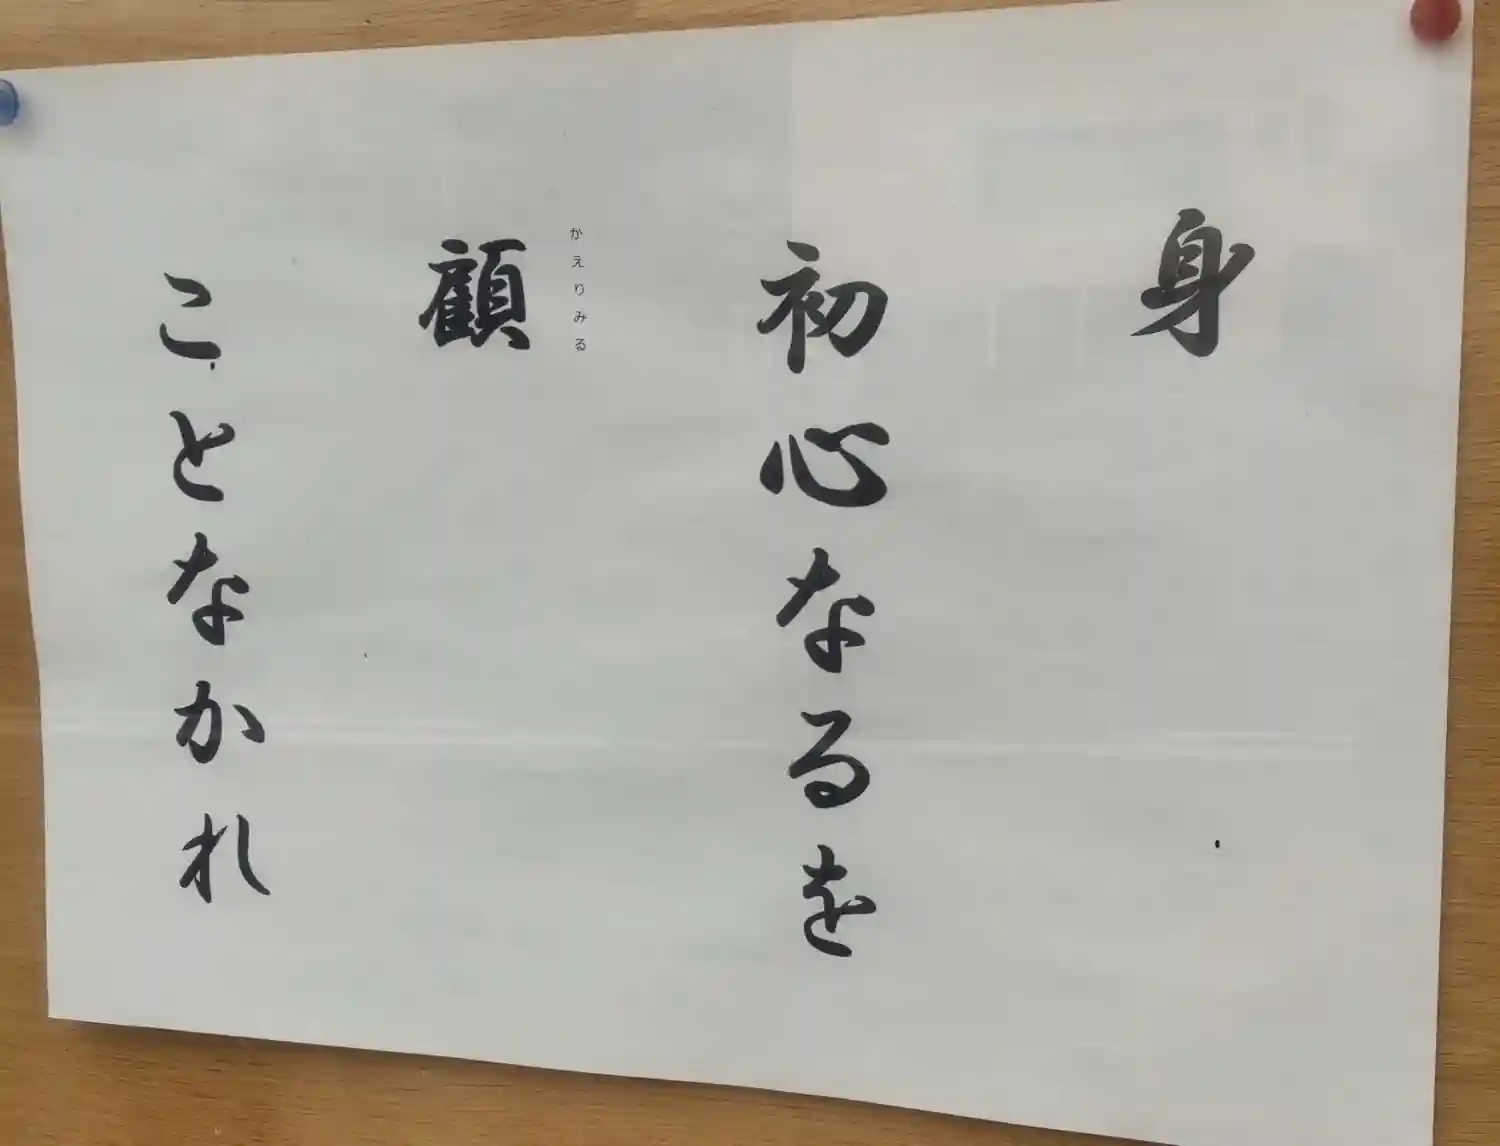 身
初心なるを
顧
かえりみる
ことなかれ